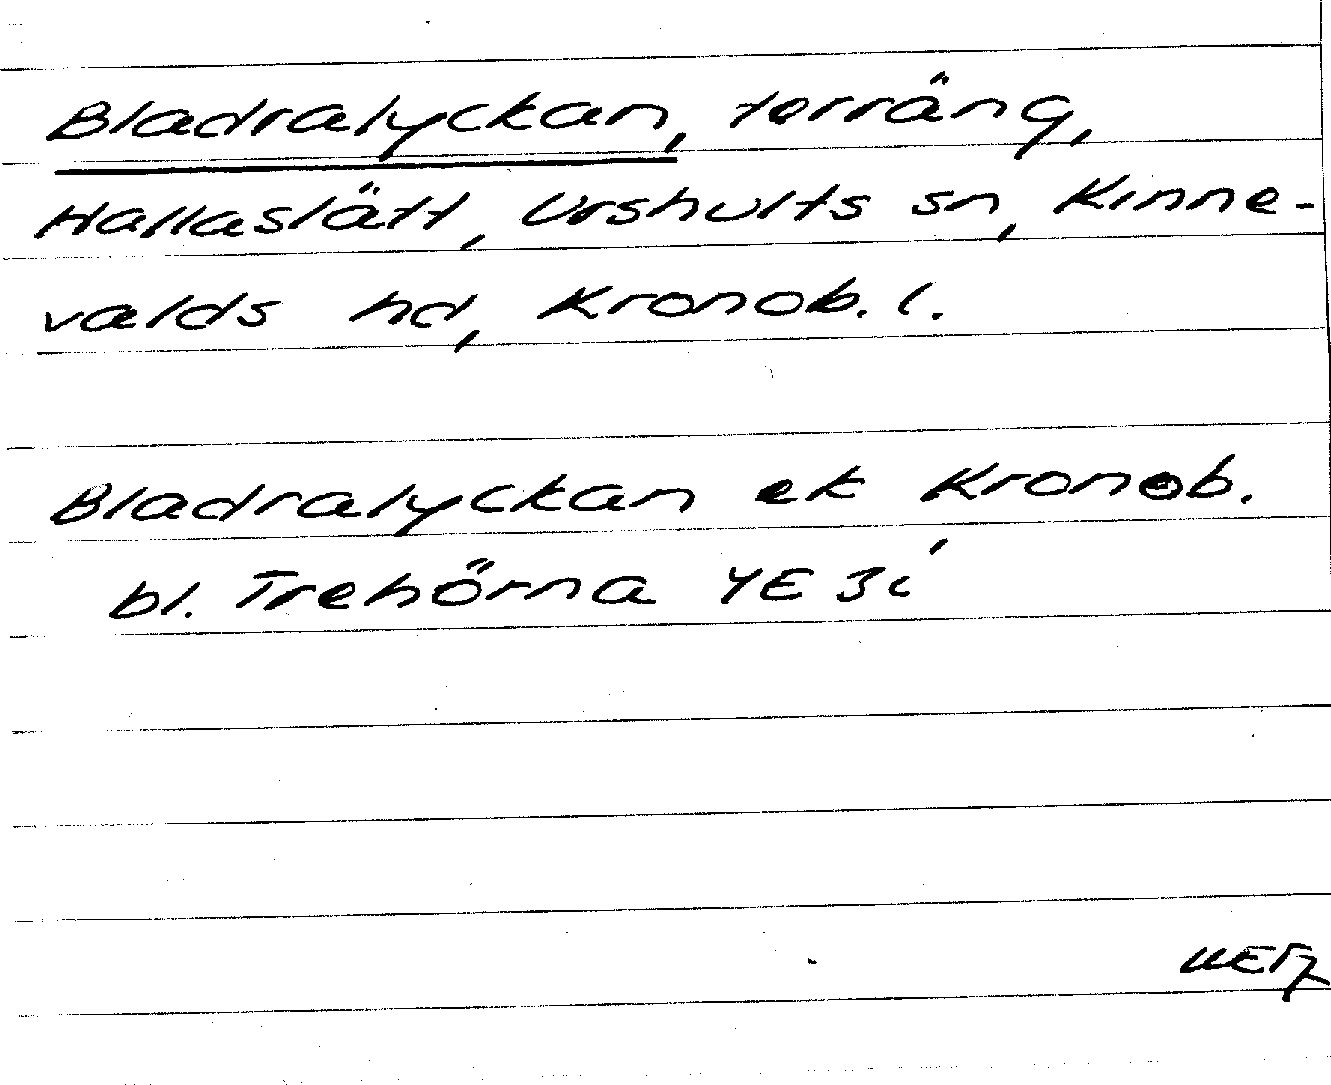 Bladralyckan, terräng,
Hallaslätt, Urshults sn, Kinne-
valds hd, Kronob. l.
Bladralyckan ek Kronob.
bl. Trehörna 4E 3i